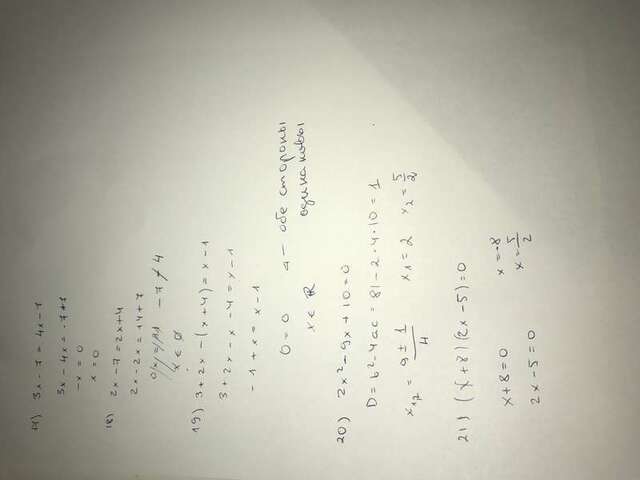 17) 3x - 7 = 4x - 7
3x - 4x = -7 + 7
-x = 0
x = 0
18) 2x - 7 = 2x + 4
2x - 2x = +4 + 7
-7 ≠ 4
x ∈ ∅
19) 3 + 2x - (x + 4) = x - 1
3 + 2x - x - 4 = x - 1
-1 + x = x - 1
0 = 0 ← обе стороны
одинаковы
x ∈ ℝ
20) 2x² - 9x + 10 = 0
D = b² - 4ac = 81 - 2·4·10 = 1
x₁,₂ = (9 ± 1)/4 x₁ = 2 x₂ = 5/2
21) (x + 8)(2x - 5) = 0
x + 8 = 0 x = -8
2x - 5 = 0 x = 5/2